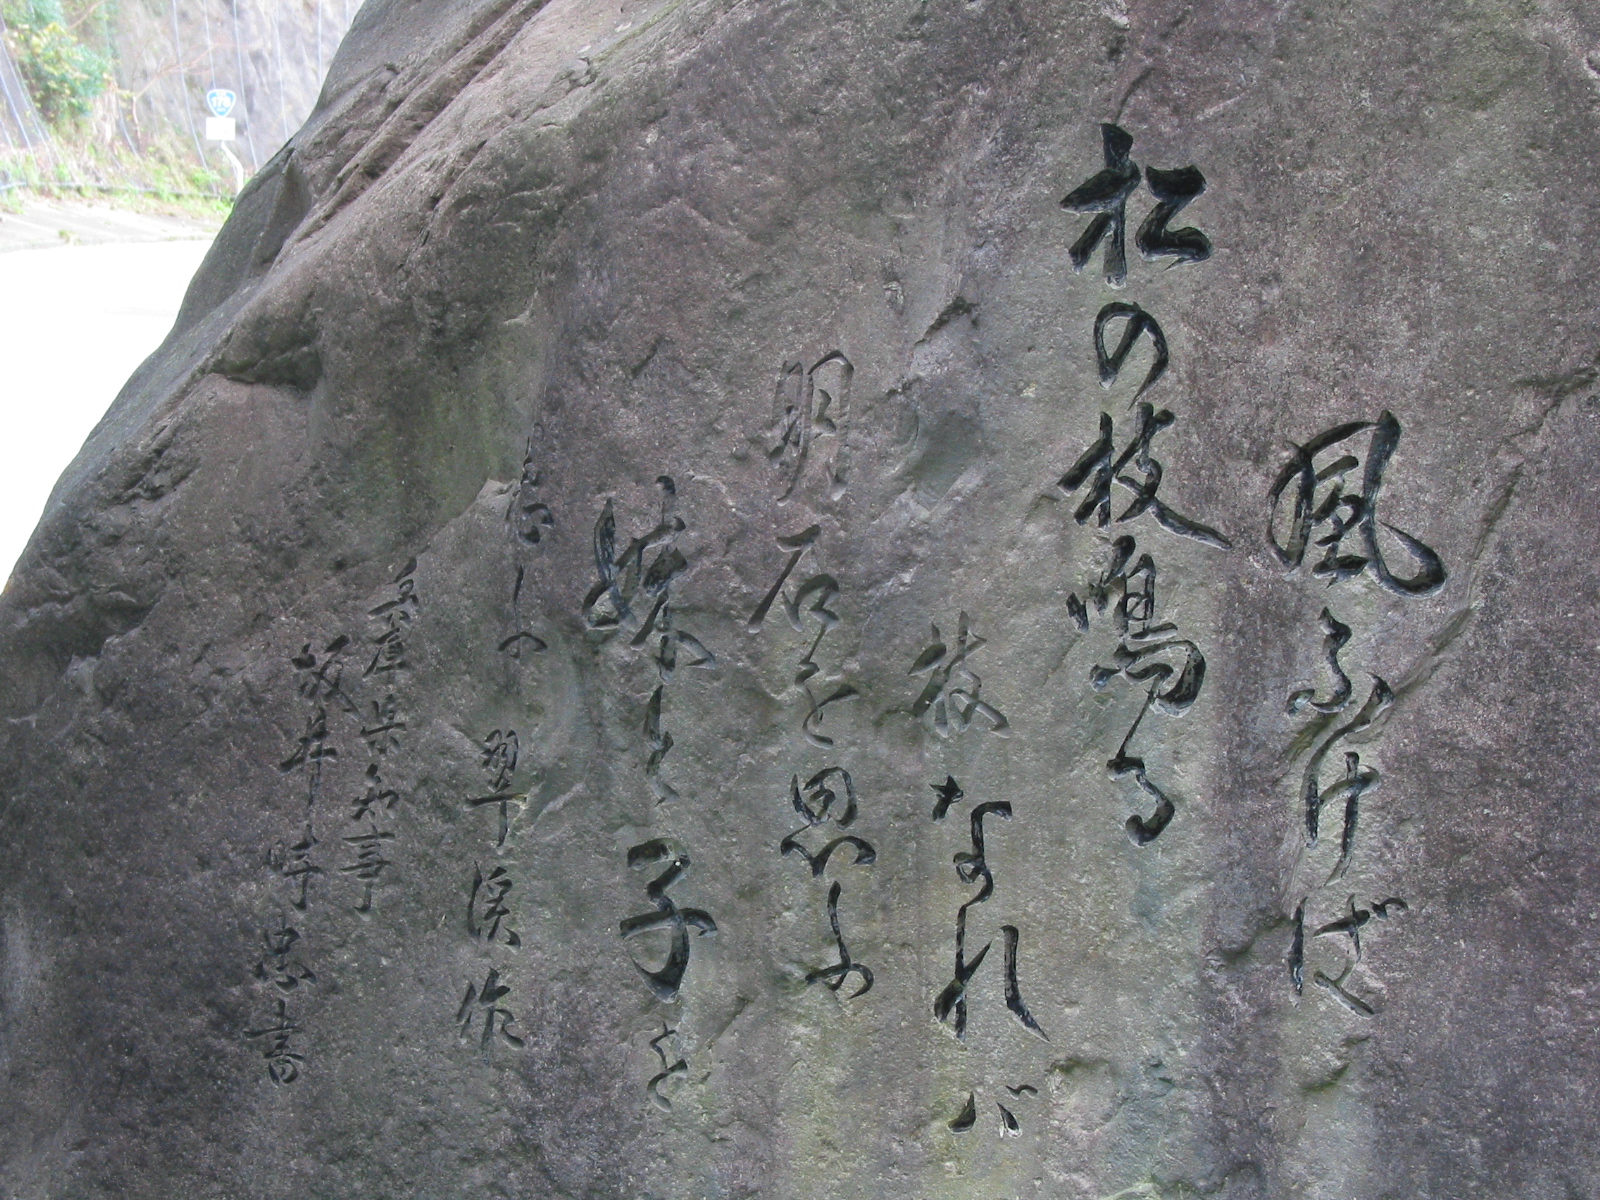 風ふけば
松の枝鳴る
枝なれば
明石を思ふ
妹と子を
翠渓作
兵庫県知事
坂井時忠書
178